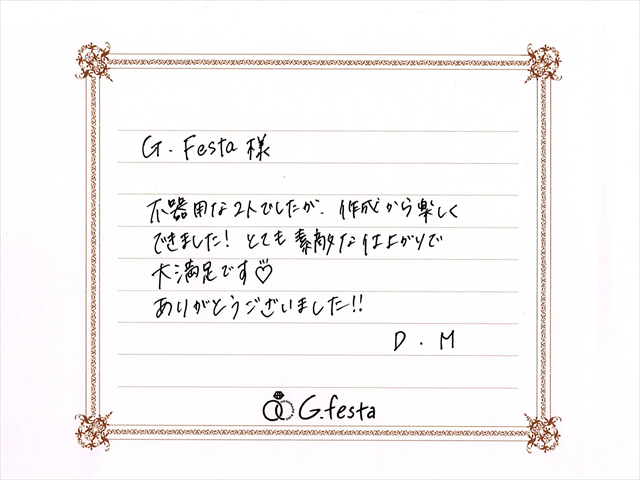 G. Festa 様
不器用な2人でしたが、作成から楽しく
できました！とても素敵な仕上がりで
大満足です♡
ありがとうございました!!
D . M
G.festa